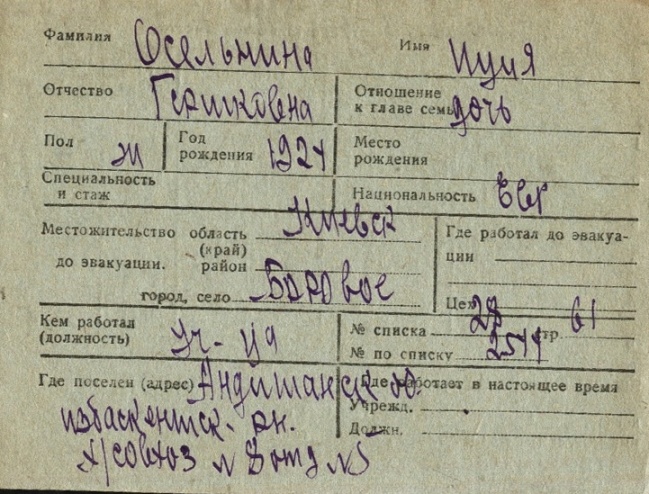 Фамилия Осельнина Имя
Отчество Гершковна Отношение к главе семьи дочь
Пол ж Год рождения 1924 Место рождения
Специальность и стаж Национальность Евр
Местожительство область (край) Киевск Где работал до эвакуации
до эвакуации. район
город, село Боровое Цех
Кем работал (должность) уч-ца № списка 28 стр. 61
№ по списку
Где поселен (адрес) Андижанск Где работает в настоящее время
избаскентск. рн. Учрежд.
х/совхоз отд N5 Должн.